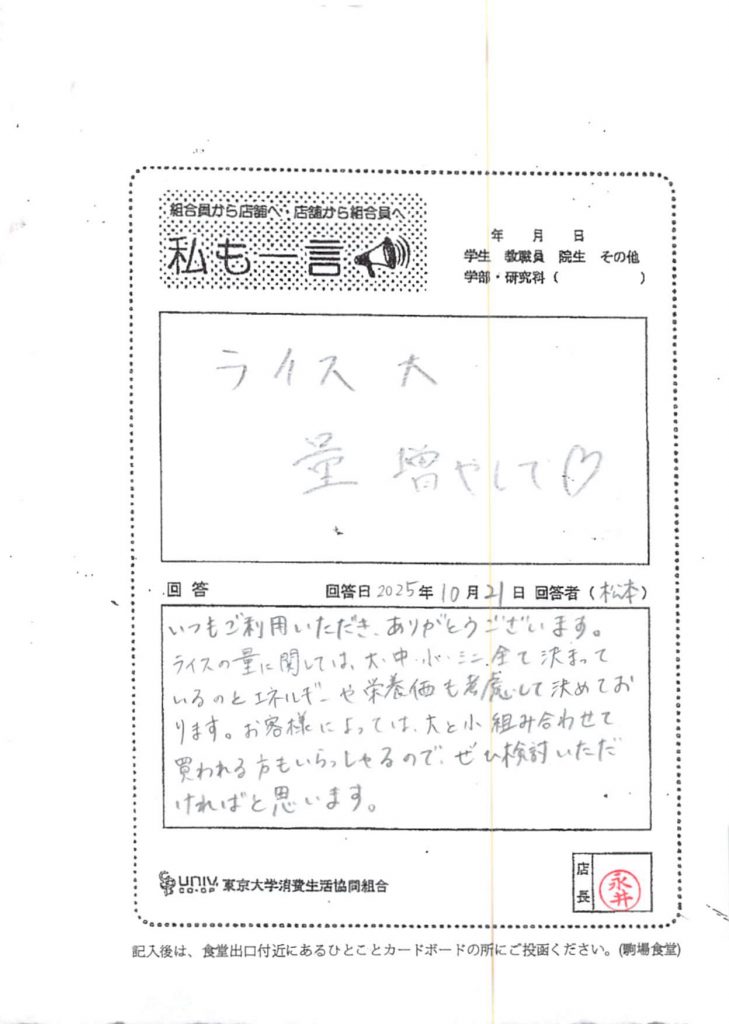 組合員から店舗へ・店舗から組合員へ
私も一言
年 月 日
学生 教職員 院生 その他
学部・研究科 ( )
ライス 大
量 増やして♡
回答 回答日 2025年 10月 21日 回答者 (松本)
いつもご利用いただき、ありがとうございます。
ライスの量に関しては、大・中・小・ミニ、全て決まって
いるのとエネルギーや栄養価も考慮して決めてお
ります。お客様によっては、大と小組み合わせて
買われる方もいらっしゃるので、ぜひ検討いただ
ければと思います。
UNIV. CO-OP 東京大学消費生活協同組合
店長 永井
記入後は、食堂出口付近にあるひとことカードボードの所にご投函ください。(駒場食堂)